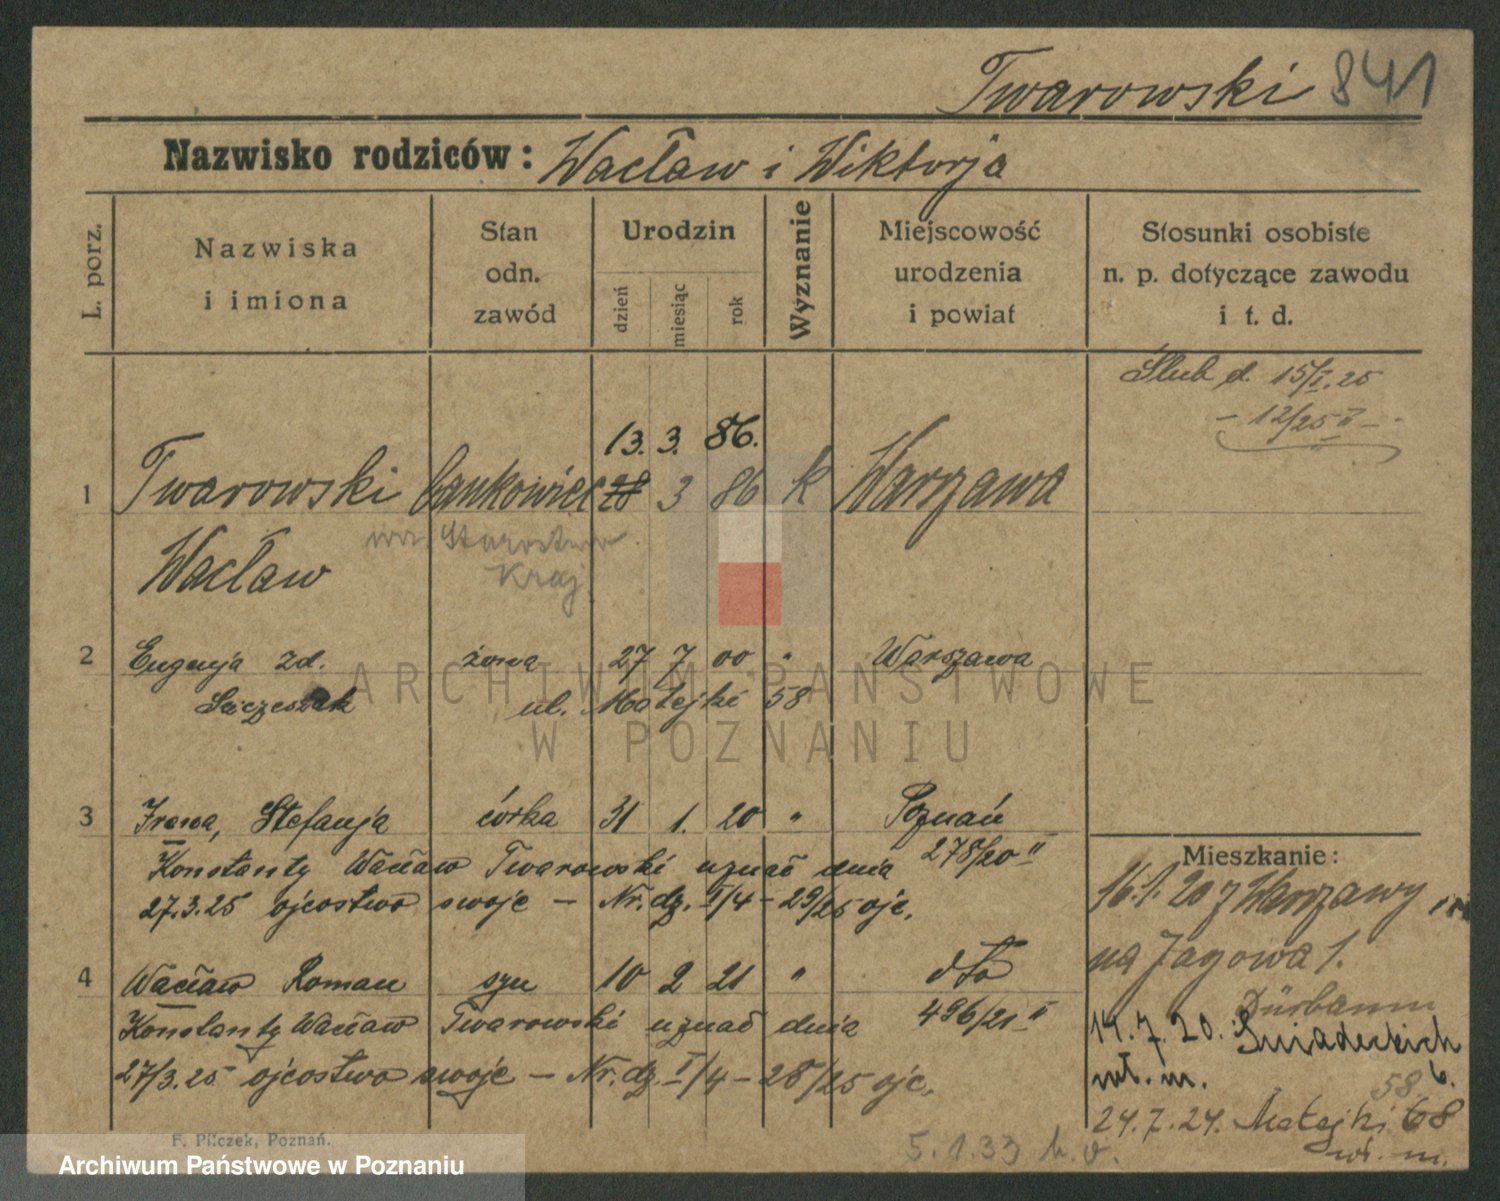 Twarowski 841
Nazwisko rodziców: Wacław i Wiktorja
L. porz.
Nazwiska
i imiona
Stan
odn.
zawód
Urodzin
dzień
miesiąc
rok
Wyznanie
Miejscowość
urodzenia
i powiat
Stosunki osobiste
n. p. dotyczące zawodu
i t. d.
Ślub d. 15/I.25
- 12/25 II -
13. 3. 86.
1 Twarowski 28 3 86 k Warszawa
Starostwo
Wacław
Kraj.
2 Eugenja zd. żona 27 7 00 " Warszawa
ul. Matejki 58
3 Irena, Stefanja córka 31 1. 20 " Poznań
278/20 II
Konstanty Wacław Twarowski uznał dnia
27.3.25 ojcostwo swoje - Nr. dz. I/4 - 29/25 ojc.
4 Wacław Roman syn 10 2 21 " dto
496/21 II
Konstanty Wacław Twarowski uznał dnia
27/3.25 ojcostwo swoje - Nr. dz. I/4 - 28/25 ojc.
Mieszkanie:
16.1.20 z Warszawy
na Jagowa 1.
14.7.20. Śniadeckich
wł. m. 6.
58
24.7.24. Matejki 68
wł. m.
5.1.33
F. Pilczek, Poznań.
ARCHIWUM PAŃSTWOWE
W POZNANIU
Archiwum Państwowe w Poznaniu